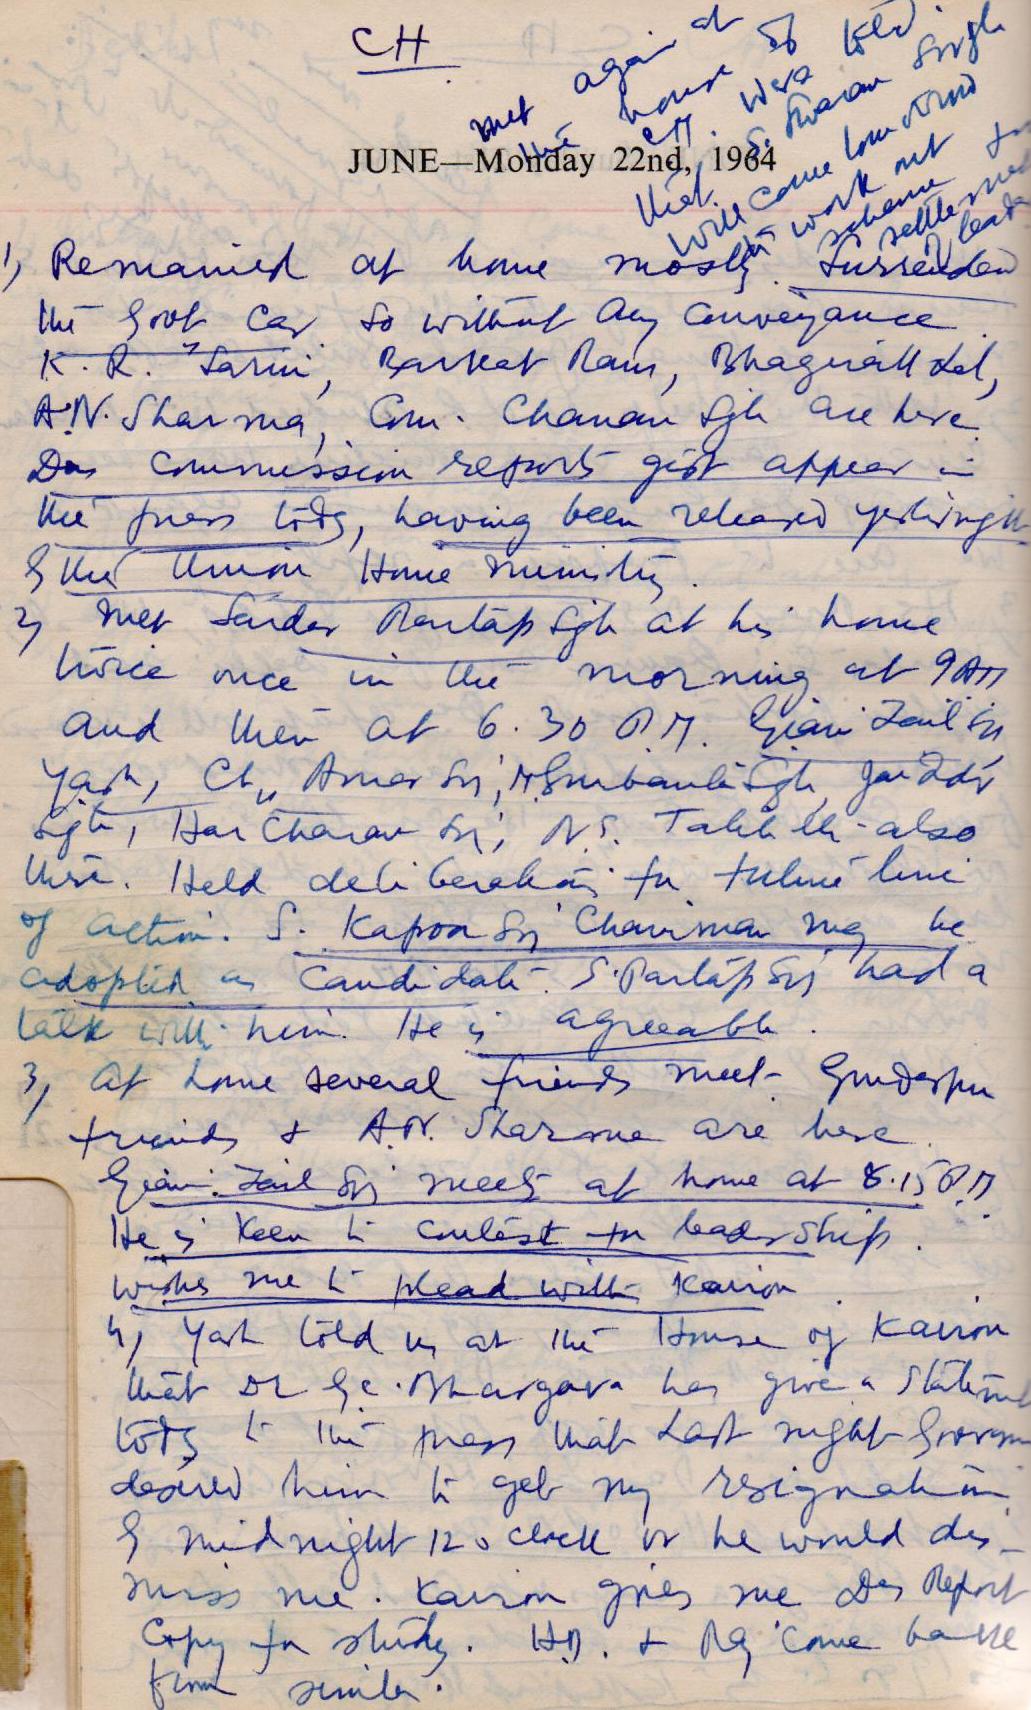 CH
met again at
the house of
CM. Was told
that S. Swaran Singh
will come tomorrow
to work out
scheme for
settlement
of leader
JUNE—Monday 22nd, 1964
1) Remained at home mostly. Surrended
the Govt Car so without any conveyance.
K. R. Sarin, Barkat Ram, Bhagirath Lal,
A.N. Sharma, Com. Chanan Sgh are here.
Das Commission reports gist appear in
the press today, having been released yesterday
by the Union Home Ministry.
2) Met Sardar Partap Sgh at his home
twice once in the morning at 9 AM
and then at 6.30 P.M. Giani Zail Sg
Yash, Ch. Amar Sg, Gurbanta Sgh,
Sgh, Har Charan Sg, N.S. also
there. Held deliberations for future line
of action. S. Kapoor Sg Chairman may be
adopted as candidate. S. Partap Sg had a
talk with him. He is agreeable.
3) At home several friends meet. Gurdaspur
friends & A.N. Sharma are here.
Giani Zail Sg meets at home at 8.15 P.M
He is keen to contest for leadership.
Wishes me to plead with Kairon
4) Yash told us at the House of Kairon
that Dr G.C. Bhargava has give a statement
today to the press that last night Governor
desired him to get my resignation
by midnight 12 o clock or he would dis-
miss me. Kairon gives me Das Report
Copy for study. H.D. & Raj come back
from Simla.